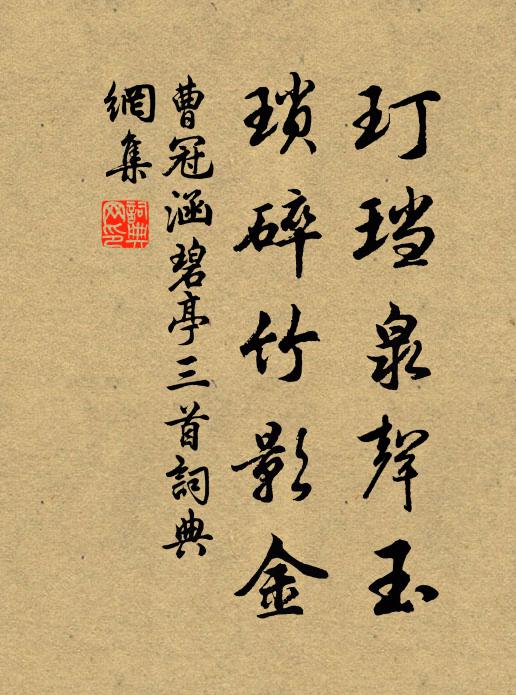 玎珰泉聲玉
瑣碎竹影金
曹冠涵碧亭三首詞典
網集
詞典網印